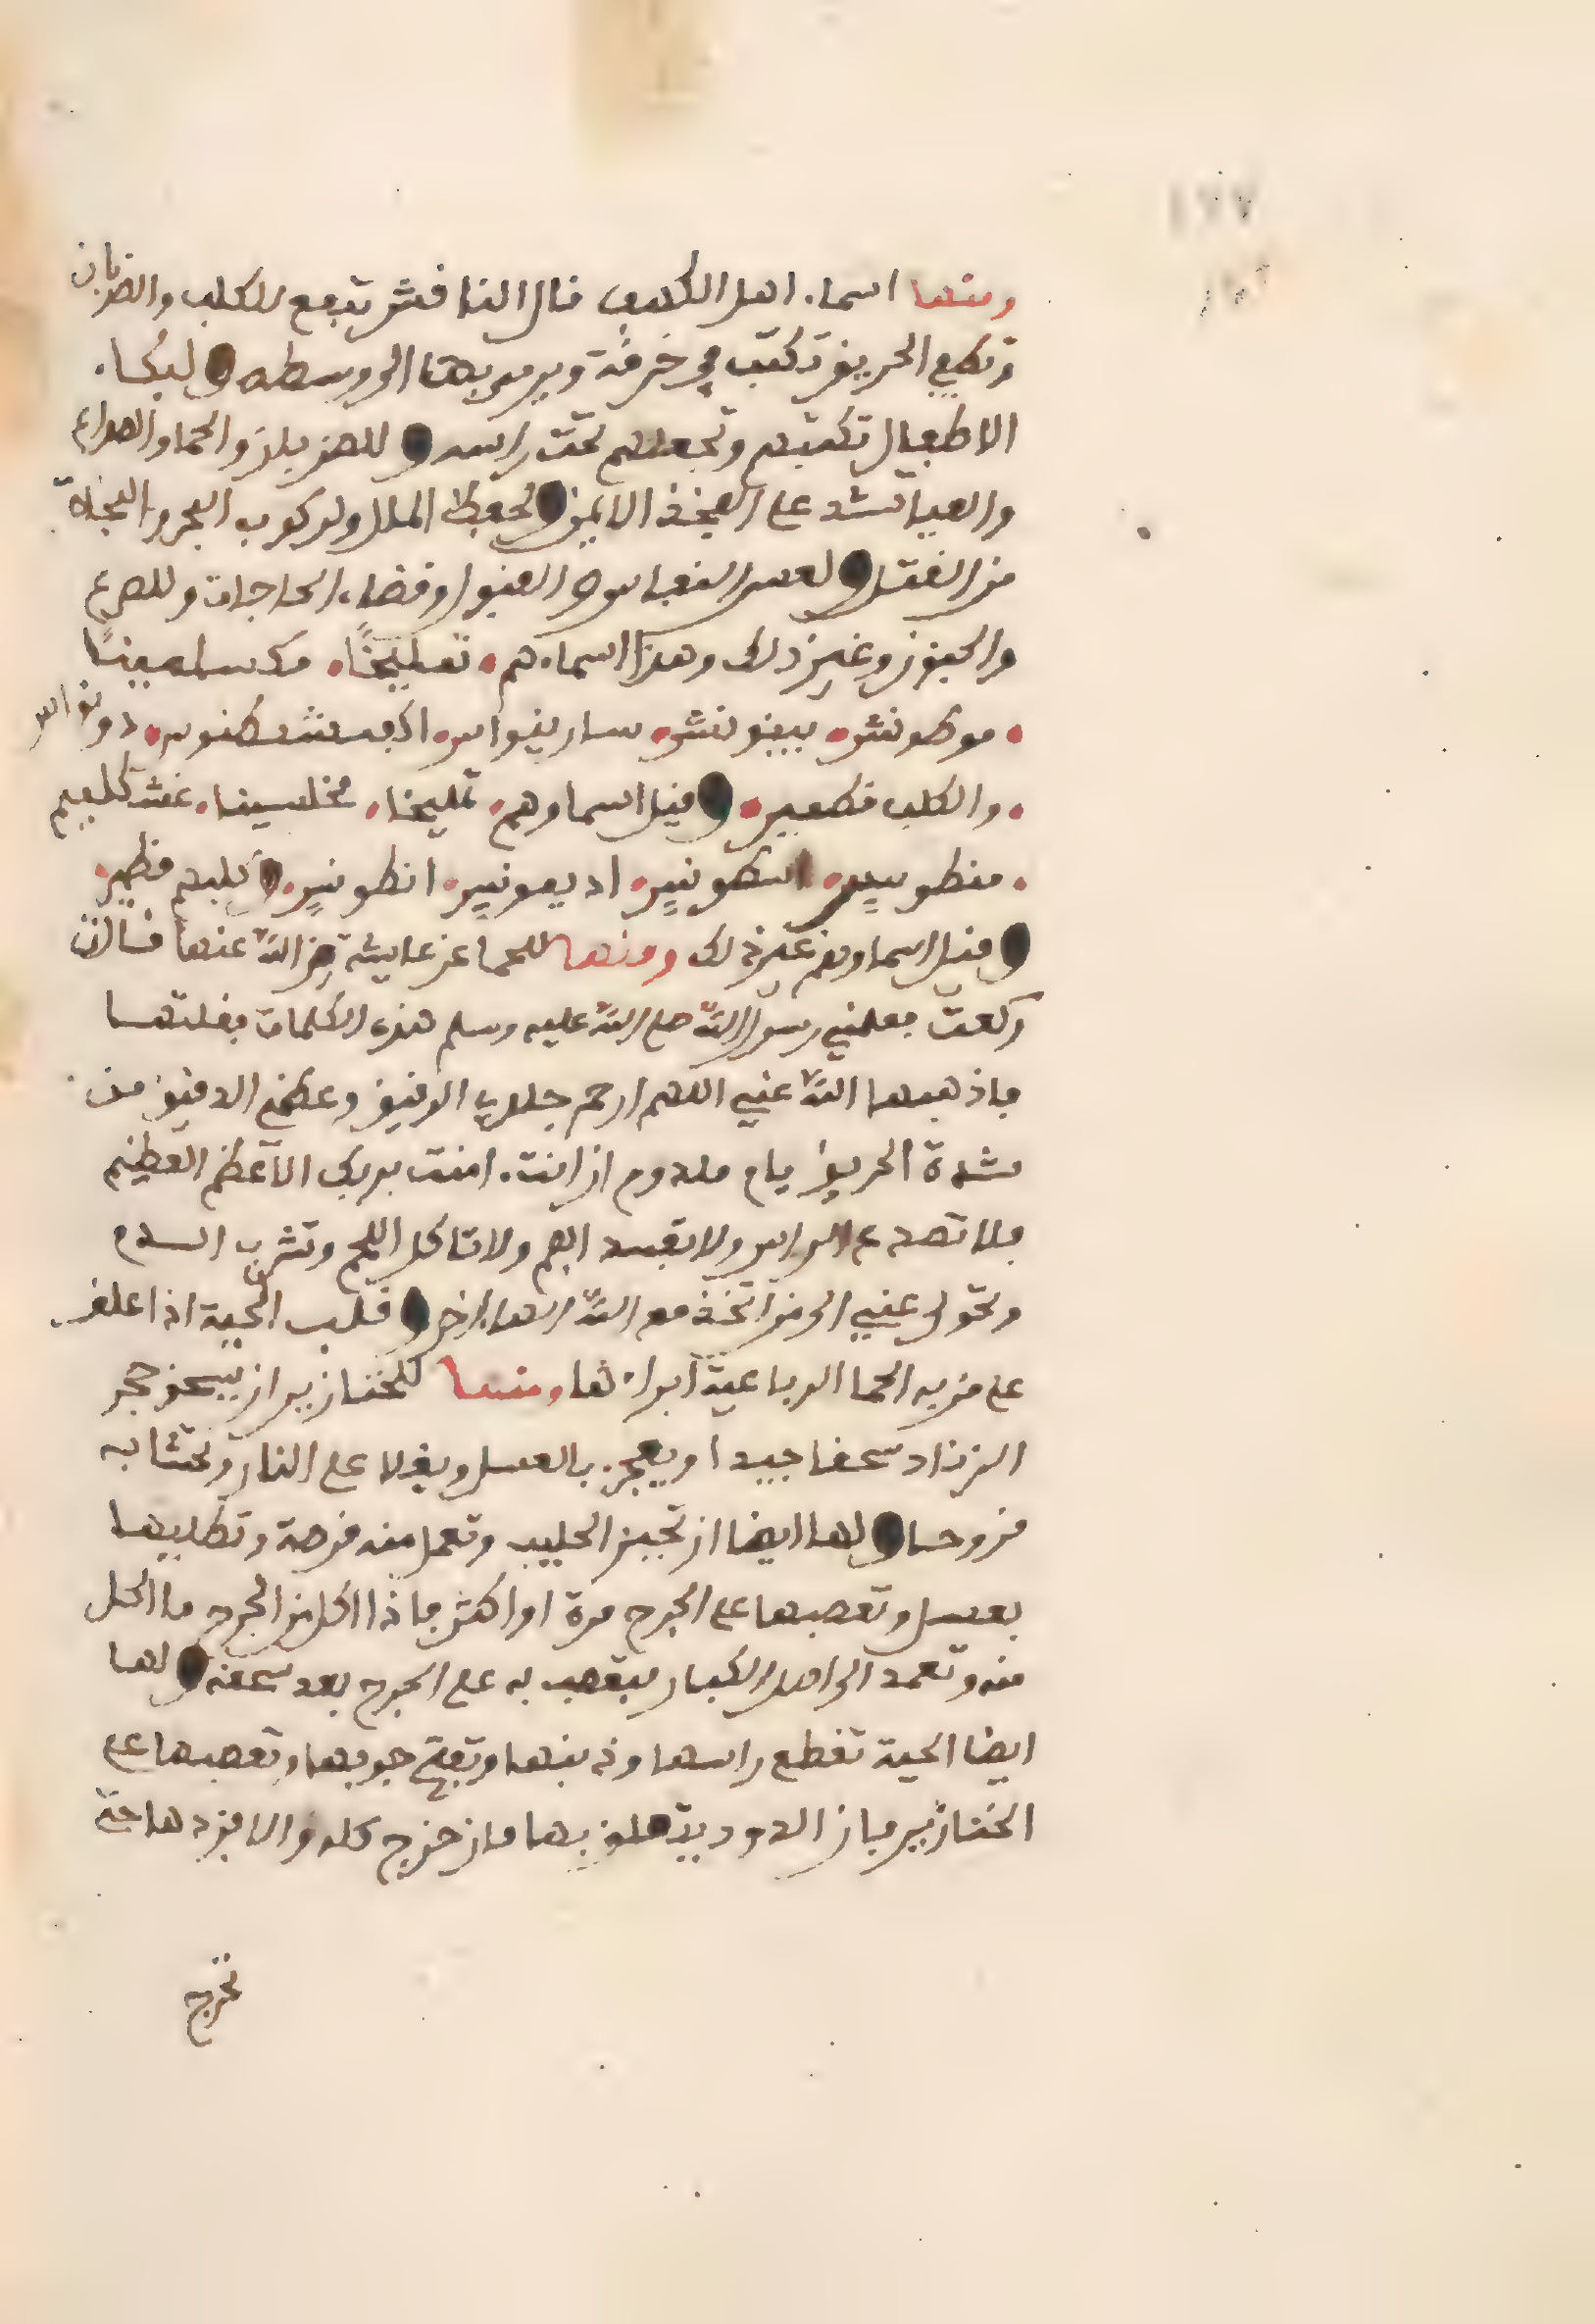 ١٧٧
ومنها اسماء اهل الكهف قال النافش تنفع للكلب والضربان
وتطفي الحريق تكتب في خرقة ويرمى بها الى وسطه ولبكاء
الاطفال تكتبهم وتجعلهم تحت راسه وللضربان والحما والصداع
والعيا تشد على الفخذ الايمن ولحفظ المال ولركوب البحر والنجاة
من القتل ولعسر النفاس والقبول وقضاء الحاجات وللصرع
والجنون وغير ذلك وهذا اسماءهم تمليخًا مكسلمينًا
موطونش بينونش سارينواس اكفشطنوس ذونواس
والكلب قطمير وقيل اسماوهم تمليخا مخلسينا
وكلبهم قطمير
وقيل اسماوهم غير ذلك ومنها للحما عن عايشة رضي الله عنها قالت
وكعت فعلمني رسول الله صلى الله عليه وسلم هذه الكلمات فقلتها
فاذهبها الله عني اللهم ارحم جلدي الرقيق وعظمي الدقيق من
شدة الحريق يام ملدم ان انت امنت بربك الاعظم العظيم
فلا تصدع الراس ولا تفسد الفم ولا تاكل اللحم وتشرب الدم
وتحولي عني الى من اتخذ مع الله الها اخر وقلب الحية اذا علق
على من به الحما الرباعية ابراها ومنها للخنازير ان يسحق حجر
الزناد سحقا جيدا ويعجن بالعسل ويغلا على النار وتحشا به
قروحها ولها ايضا ان تجبن الحليب وتعمل منه قرصة وتطليها
بعسل وتعصبها على الجرح مرة او اكثر فاذا اكل من الجرح ما اكل
منه وتعمد الى الكبار فيعصب به على الجرح بعد سحقه ولها
ايضا الحية تقطع راسها وذنبها وتفتح جوفها وتعصبها على
الخنازير فان الدود يتعلق بها فان خرج كله والا فزدها حتى
تخرج